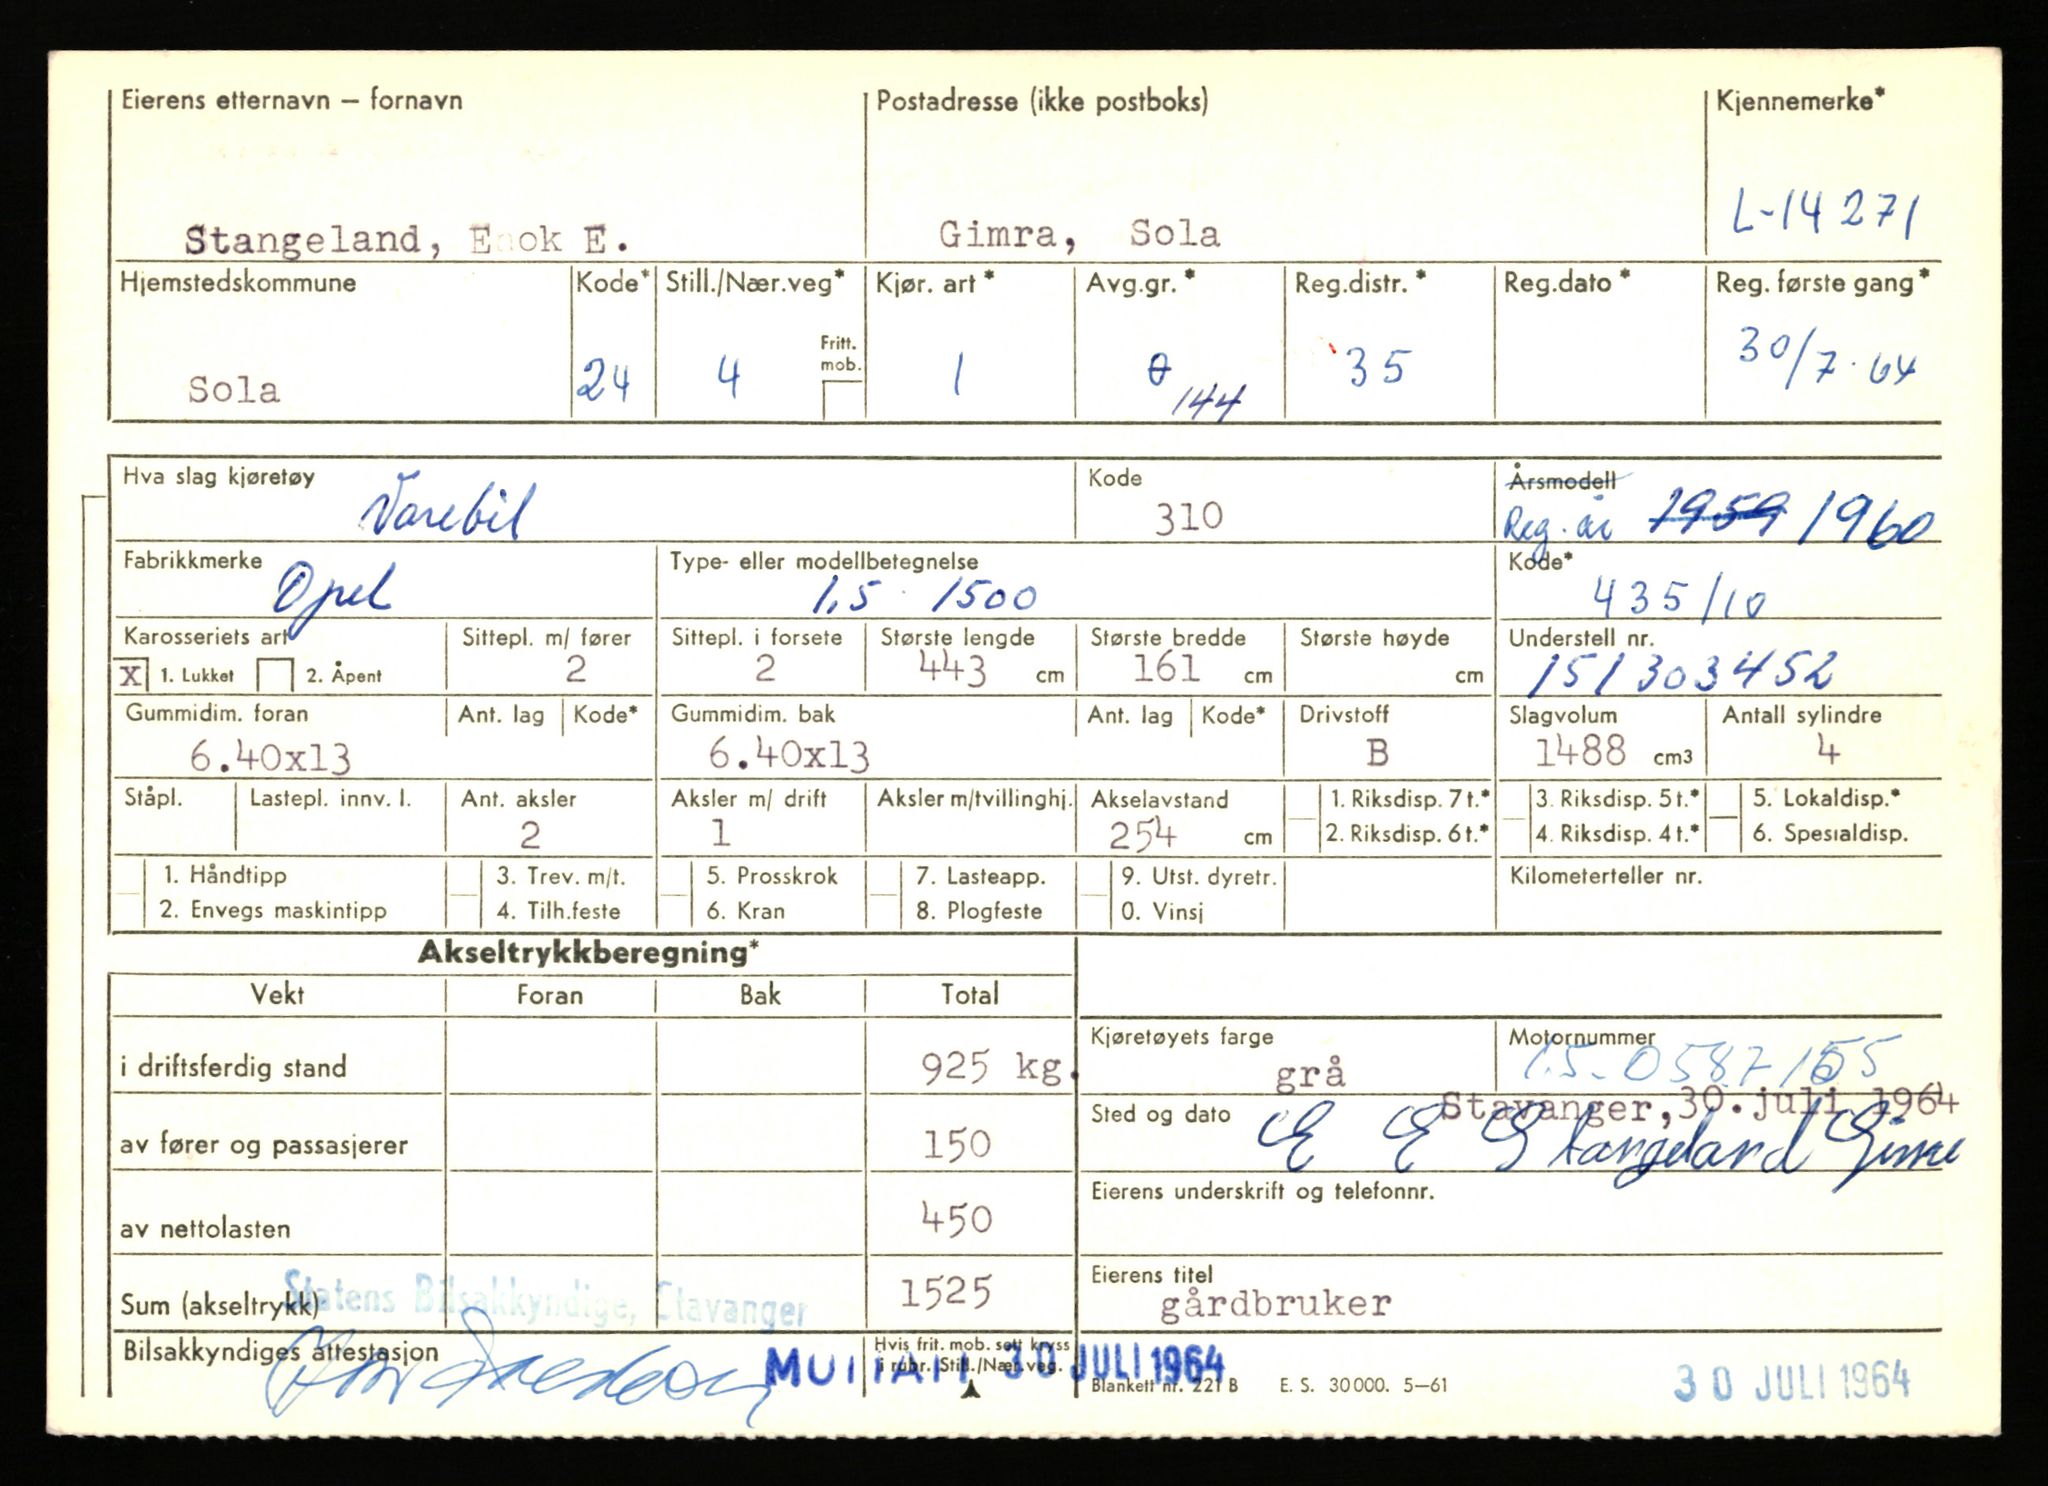 Eierens etternavn – fornavn Postadresse (ikke postboks) Kjennemerke*
Stangeland, Enok E. Gimra, Sola L-14271
Hjemstedskommune Kode* Still./Nær.veg* Kjør. art* Avg.gr.* Reg.distr.* Reg.dato* Reg. første gang*
Fritt. mob.
Sola 24 4 1 0 144 35 30/7.64
Hva slag kjøretøy Varebil Kode 310 Årsmodell Reg. år 1959 1960
Fabrikkmerke Opel Type- eller modellbetegnelse 1.5 1500 Kode* 435/10
Karosseriets art Sittepl. m/ fører Sittepl. i forsete Største lengde Største bredde Største høyde Understell nr.
X 1. Lukket 2. Åpent 2 2 443 cm 161 cm cm 151303452
Gummidim. foran Ant. lag Kode* Gummidim. bak Ant. lag Kode* Drivstoff Slagvolum Antall sylindre
6.40x13 6.40x13 B 1488 cm3 4
Ståpl. Lastepl. innv. l. Ant. aksler Aksler m/ drift Aksler m/tvillinghj. Akselavstand 1. Riksdisp. 7 t.* 3. Riksdisp. 5 t.* 5. Lokaldisp.*
2 1 254 cm 2. Riksdisp. 6 t.* 4. Riksdisp. 4 t.* 6. Spesialdisp.
1. Håndtipp 3. Trev. m/t. 5. Prosskrok 7. Lasteapp. 9. Utst. dyretr. Kilometerteller nr.
2. Envegs maskintipp 4. Tilh.feste 6. Kran 8. Plogfeste 0. Vinsj
Akseltrykkberegning*
Vekt Foran Bak Total
i driftsferdig stand 925 kg.
Kjøretøyets farge grå Motornummer 1.5-0587155
av fører og passasjerer 150
Sted og dato Stavanger, 30. juli 1964
E E Stangeland
av nettolasten 450
Eierens underskrift og telefonnr.
Sum (akseltrykk) 1525
Statens Bilsakkyndige, Stavanger
Eierens titel
gårdbruker
Bilsakkyndiges attestasjon
Hvis frit. mob. sett kryss
i rubr. Still./Nær.veg.
30 JULI 1964
Blankett nr. 221 B E. S. 30000. 5–61
30 JULI 1964